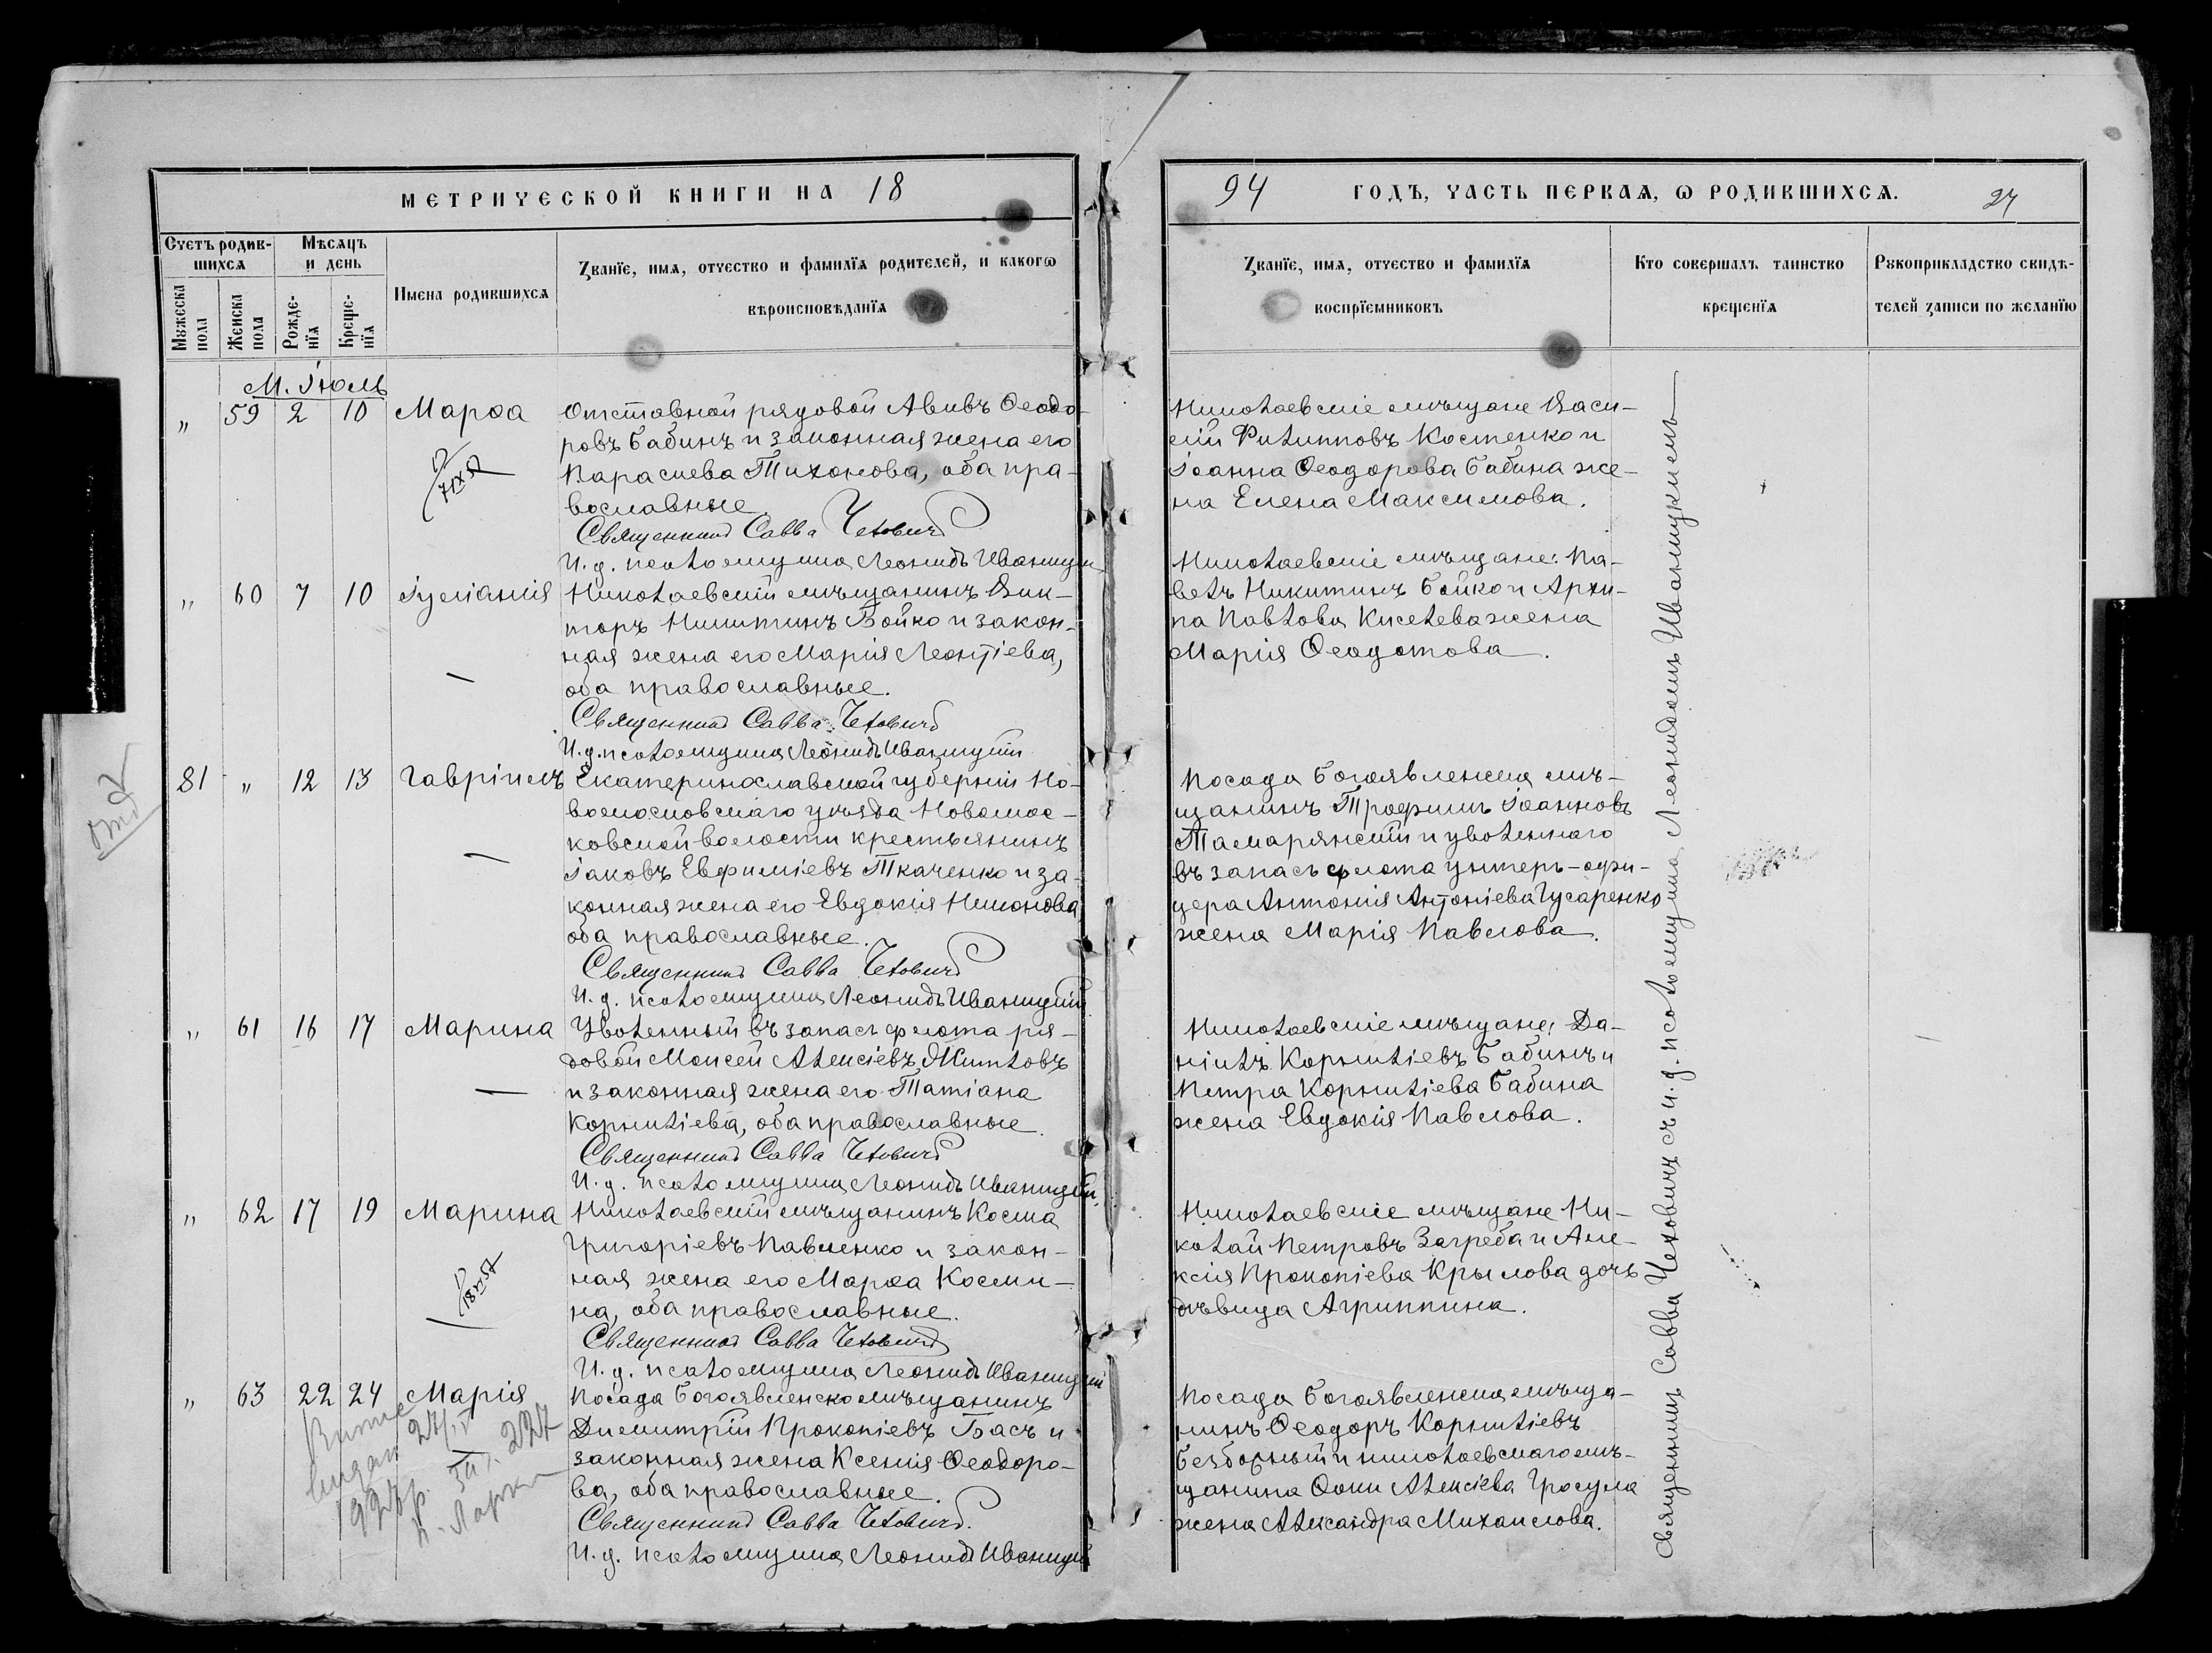 МЕТРИЧЕСКОЙ КНИГИ НА 18
94 ГОДЪ, ЧАСТЬ ПЕРВАѦ, Ѡ РОДИВШИХСѦ. 27
Счетъ родив-
шихсѧ
Мѣсѧцъ
и день
Мꙋжеска
пола
Женска
пола
Рожде-
нїѧ
Креще-
нїѧ
Имена родившихсѧ
Ꙁванїе, имѧ, отчество и фамилїѧ родителей, и какогѡ
вѣроисповѣданїѧ
Ꙁванїе, имѧ, отчество и фамилїѧ
воспрїемниковъ
Кто совершалъ таинство
крещенїѧ
Рꙋкоприкладство свидѣ-
телей ꙁаписи по желанїю
М. Іюль
„ 59 2 10 Марѳа
Отставной рядовой Авивъ Ѳеодо-
ровъ Бабинъ и законная жена его
Параскева Тихонова, оба пра-
вославные.
Священникъ Савва Чехович
И. д. псаломщика Леонидъ Иваницкій
Николаевскіе мѣщане Васи-
лій Филипповъ Костенко и
Іоанна Ѳеодорова Бабина же-
на Елена Максимова.
„ 60 7 10 Іуліанія
Николаевскій мѣщанинъ Вик-
торъ Никитинъ Бойко и закон-
ная жена его Марія Леонтіева,
оба православные.
Священникъ Савва Чехович
И. д. псаломщика Леонидъ Иваницкій
Николаевскіе мѣщане: Па-
велъ Никитинъ Бойко и Архи-
па Павлова Киселева жена
Марія Ѳеодотова.
81 „ 12 13 Гавріилъ
Екатеринославской губерніи Но-
вомосковскаго уѣзда Новомос-
ковской волости крестьянинъ
Іаковъ Евфиміевъ Ткаченко и за-
конная жена его Евдокія Никонова
оба православные.
Священникъ Савва Чехович
И. д. псаломщика Леонидъ Иваницкій
Посада Богоявленска мѣ-
щанинъ Трофимъ Іоанновъ
Тамарянскій и уволеннаго
въ запасъ флота унтеръ-офи-
цера Антонія Антоніева Гусаренко
жена Марія Павлова.
„ 61 16 17 Марина
Уволенный въ запасъ флота ря-
довой Моисей Алексіевъ Житловъ
и законная жена его Татіана
Корниліева, оба православные.
Священникъ Савва Чехович
И. д. псаломщика Леонидъ Иваницкій
Николаевскіе мѣщане: Да-
ніилъ Корниліевъ Бабинъ и
Петра Корниліева Бабина
жена Евдокія Павлова.
„ 62 17 19 Марина
Николаевскій мѣщанинъ Косма
Григоріевъ Павленко и закон-
ная жена его Марѳа Косми-
на, оба православные.
Священникъ Савва Чехович
И. д. псаломщика Леонидъ Иваницкій
Николаевскіе мѣщане Ни-
колай Петровъ Загреба и Але-
ксія Прокопіева Крылова дочь
дѣвица Агриппина.
„ 63 22 24 Марія
Посада Богоявленска мѣщанинъ
Димитрій Прокопіевъ Басъ и
законная жена Ксенія Ѳеодоро-
ва, оба православные.
Священникъ Савва Чехович.
И. д. псаломщика Леонидъ Иваницкій
Посада Богоявленска мѣща-
нинъ Ѳеодоръ Корниліевъ
Безборный и николаевскаго мѣ-
щанина Ѳомы Алексіева Гросула
жена Александра Михаилова.
Священникъ Савва Чеховичъ съ и. д. псаломщика Леонидомъ Иваницкимъ